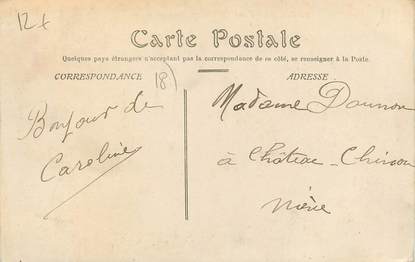 12+
Carte Postale
Quelques pays étrangers n'acceptant pas la correspondance de ce côté, se renseigner à la Poste.
CORRESPONDANCE
18)
Bonjour de
Caroline
ADRESSE
Madame
à Château-Chinon
Nièvre